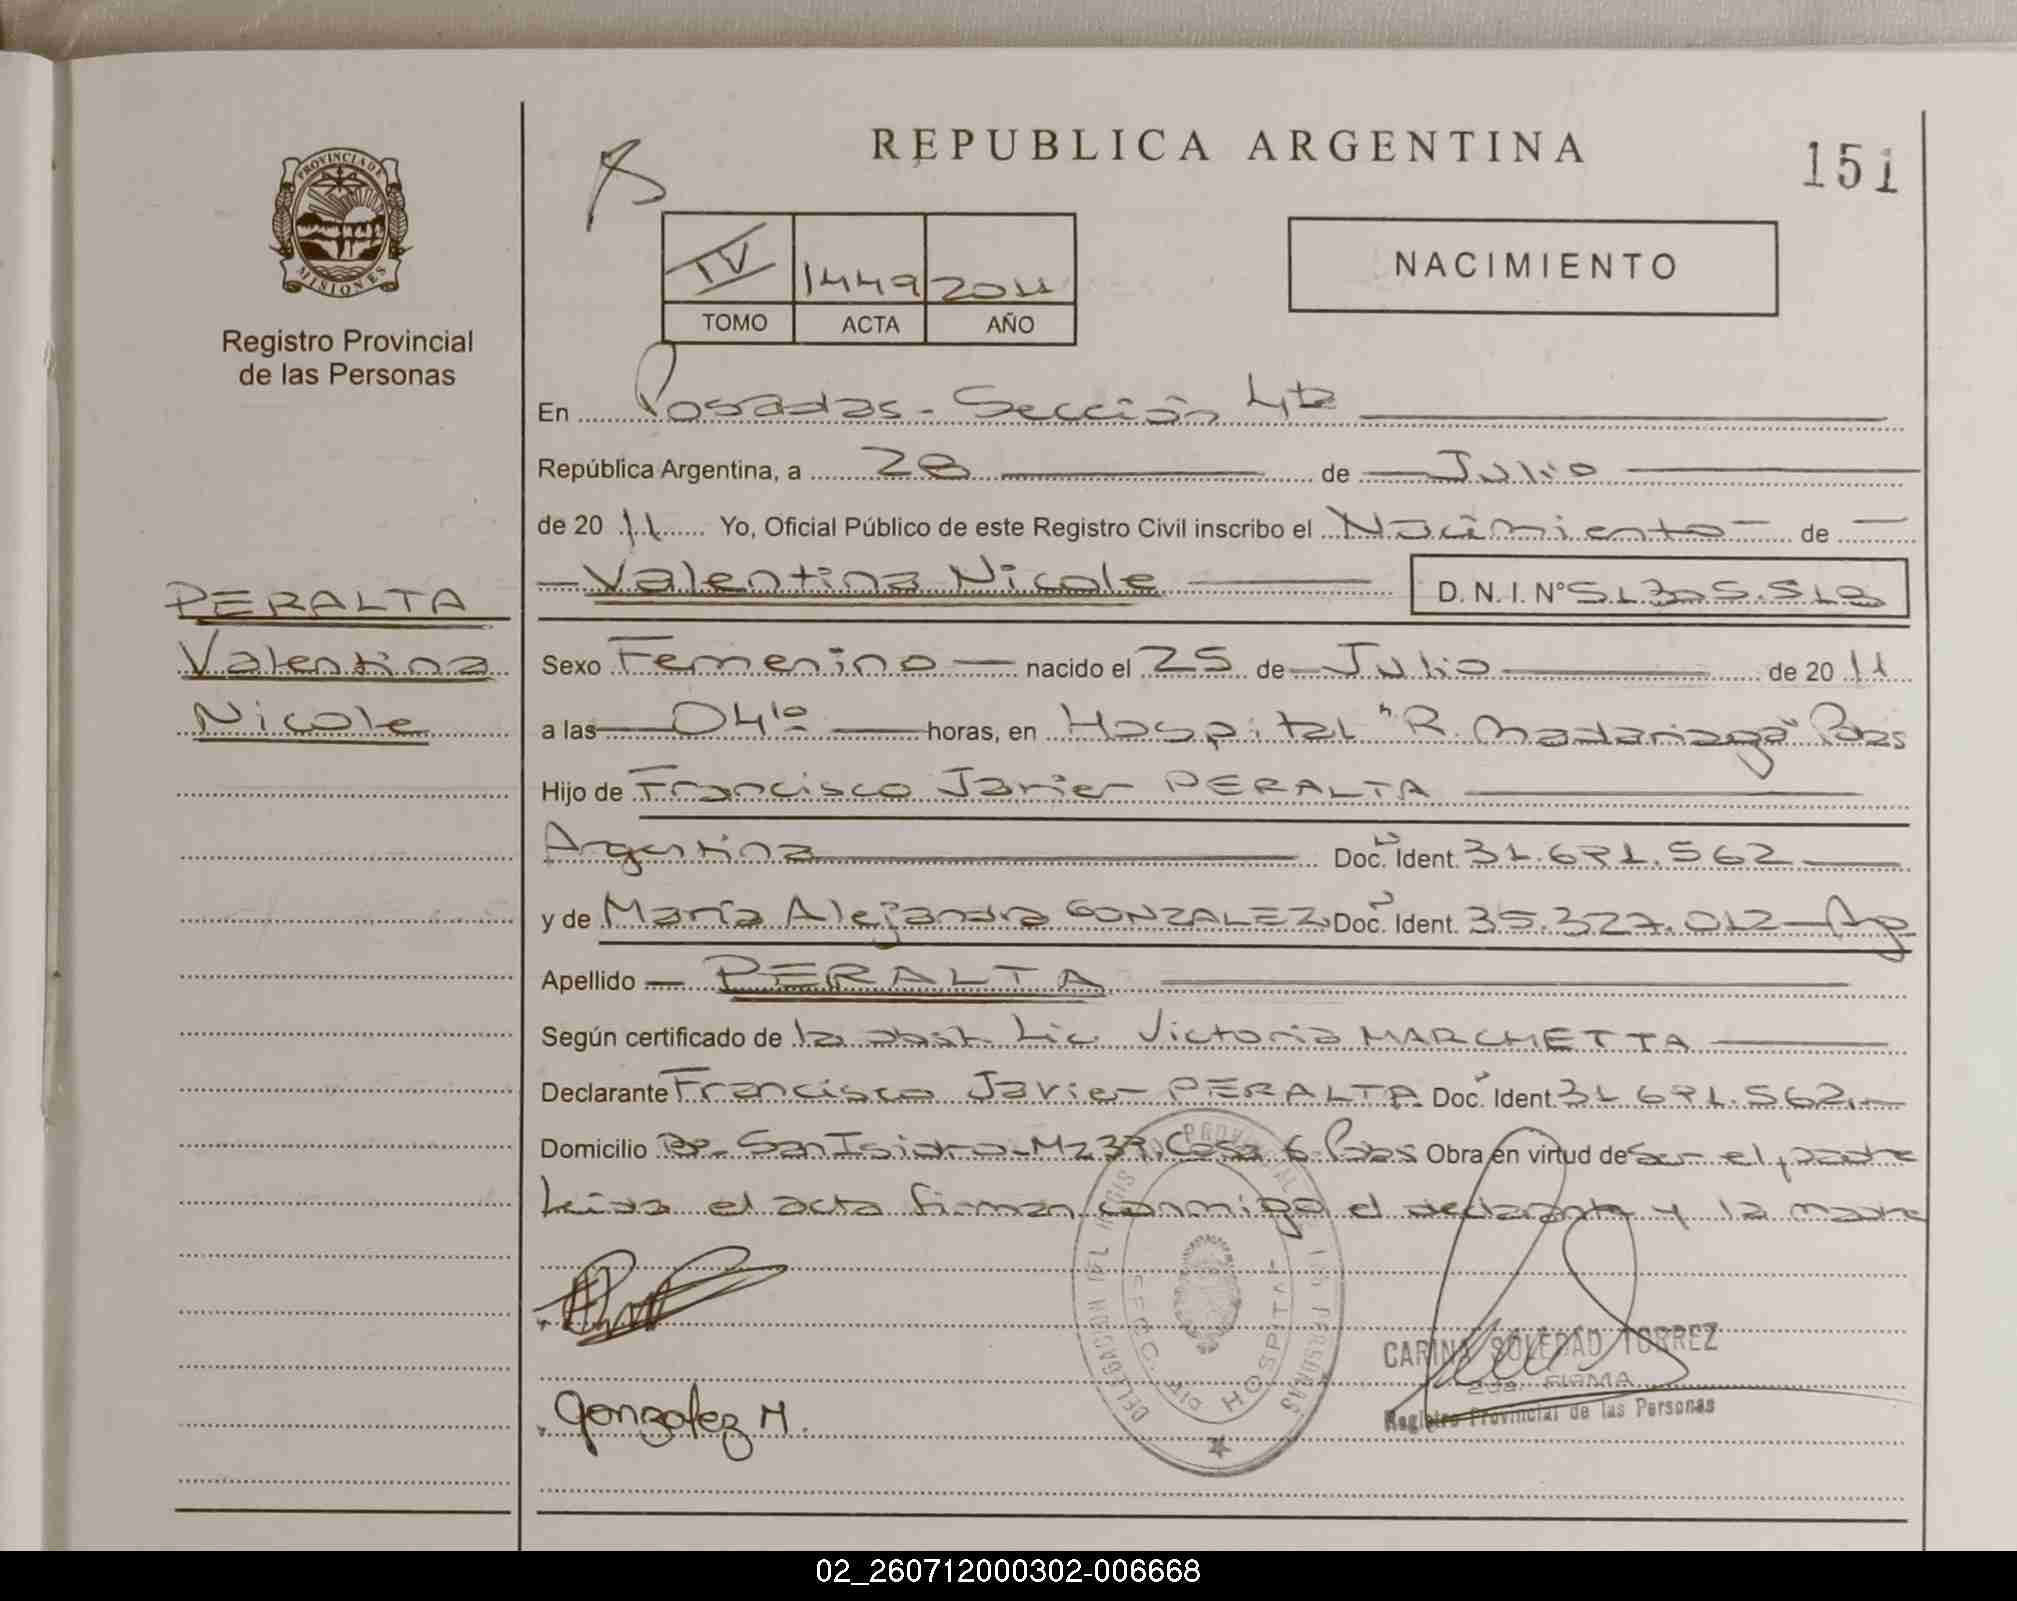 REPUBLICA ARGENTINA
151
PROVINCIA DE
MISIONES
Registro Provincial
de las Personas
IV 1449 2011
TOMO ACTA AÑO
NACIMIENTO
En Posadas - Sección 4ta
República Argentina, a 28 de Julio
de 2011 Yo, Oficial Público de este Registro Civil inscribo el Nacimiento de
Valentina Nicole D. N. I. N° 51.305.518
PERALTA
Valentina
Nicole
Sexo Femenino nacido el 25 de Julio de 2011
a las 04¹⁰ horas, en Hospital "R. Madariaga" Pdas
Hijo de Francisco Javier PERALTA
Argentina Doc. Ident. 31.671.562
y de María Alejandra GONZALEZ Doc. Ident. 35.327.012 - Arg
Apellido PERALTA
Según certificado de la Lic. Victoria MARCHETTA
Declarante Francisco Javier PERALTA Doc. Ident. 31.671.562.-
Domicilio Bº San Isidro - Mz 37, Casa 6 - Pdas Obra en virtud de ser el padre
Leida el acta firman conmigo el declarante y la madre
DELEGACION DEL REGISTRO PROVINCIAL DE LAS PERSONAS
SECC. HOSPITAL
CARINA SOLEDAD TORREZ
2da. FIRMA
Registro Provincial de las Personas
Gonzalez M.
02_260712000302-006668